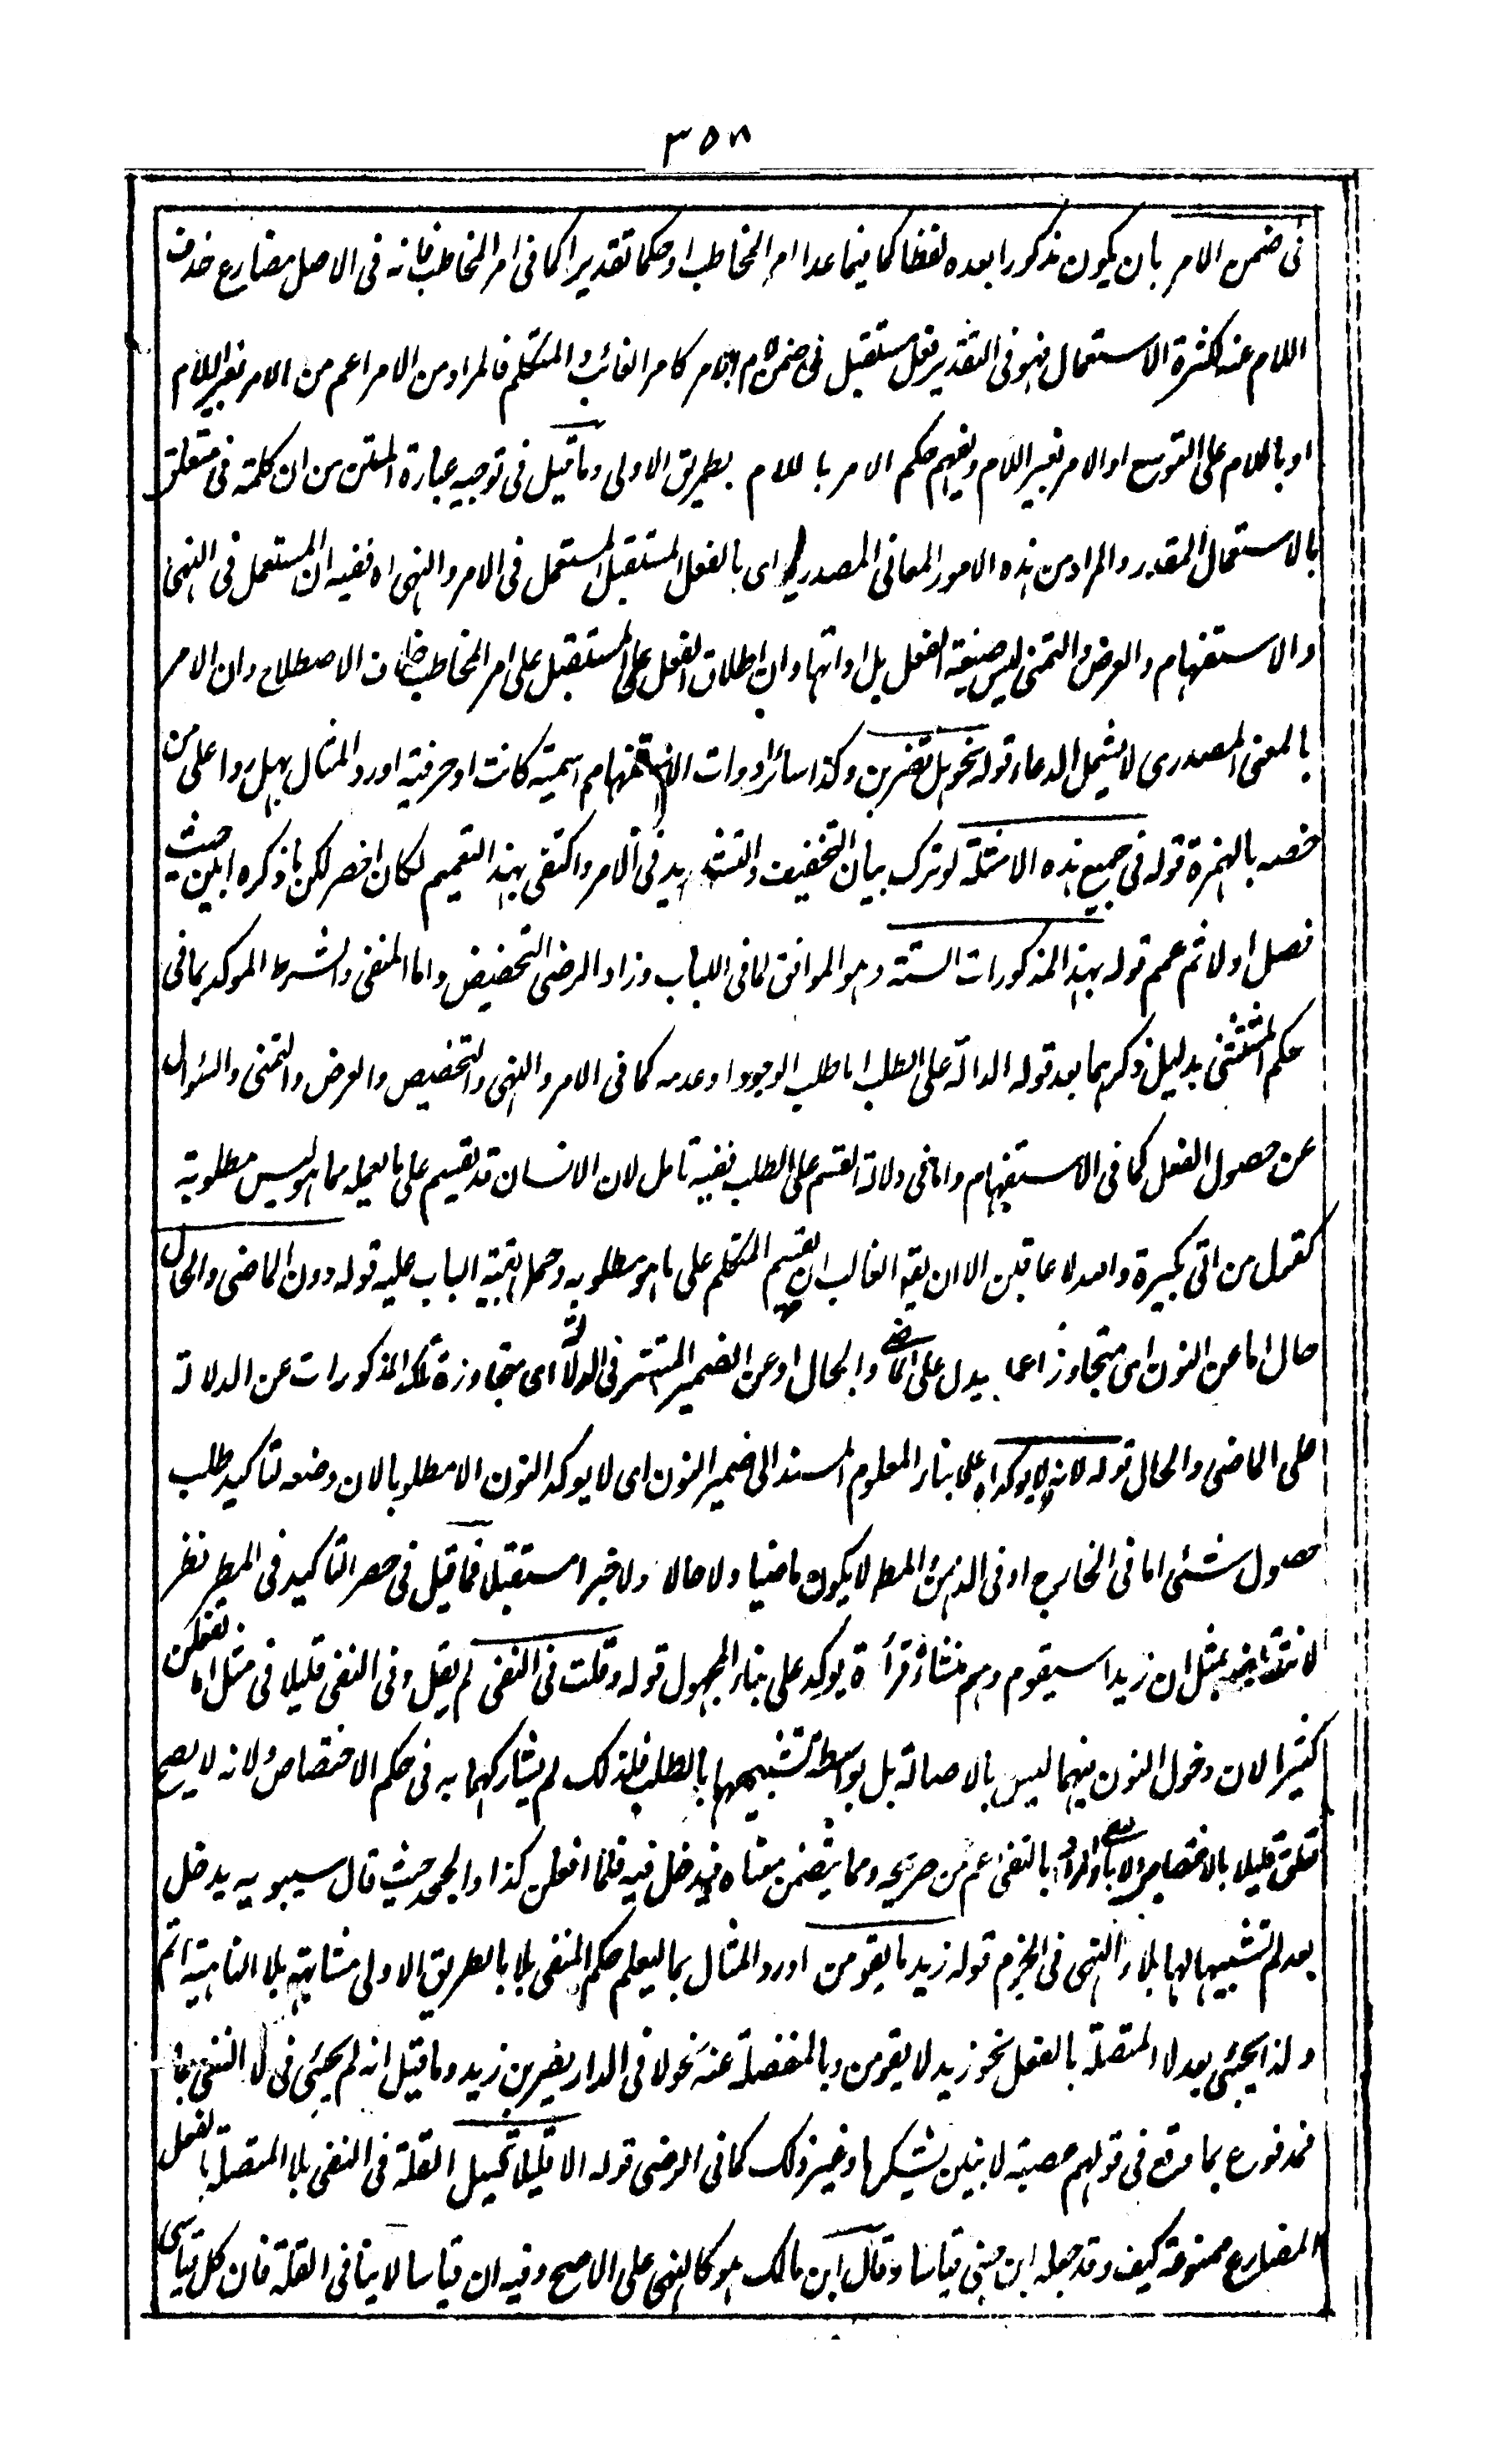 ٣٥٨
فى ضمن الامر بان يكون مذكورا بعده لفظا كما فيما عدا امر المخاطب او حكما تقديرا كما فى امر المخاطب فانه فى الاصل مضارع حذف
اللام عنه لكثرة الاستعمال فهو فى التقدير فعل مستقبل فى ضمن الامر كامر الغائب والمتكلم فالمراد من الامر اعم من الامر بغير اللام
او باللام على التوسع او الامر بغير اللام ويفهم حكم الامر باللام بطريق الاولى وما قيل فى توجيه عبارة المتن من ان كلمة فى متعلق
بالاستعمال المقدر والمراد من هذه الامور المعانى المصدرية اى بالفعل المستقبل المستعمل فى الامر والنهى اه ففيه ان المستعمل فى النهى
والاستفهام والعرض والتمنى ليس صيغة الفعل بل ادواتها وان اطلاق الفعل على المستقبل على امر المخاطب خلاف الاصطلاح وان الامر
بالمعنى المصدرى لا يشمل الدعاء قوله نحو هل تضربن وكذا سائر ادوات الاستفهام اسمية كانت او حرفية اورد المثال بهل ردا على من
خصه بالهمزة قوله فى جميع هذه الامثلة لو ترك بيان التخفيف والتشديد فى الامر واكتفى بهذا التعميم لكان اخصر لكن ما ذكره ابين حيث
فصل اولا ثم عمم قوله بهذا المذكورات الستة وهو الموافق لما فى اللباب وزاد الرضى التحضيض واما المنفى والشرط الموكد بما فى
حكم المستثنى بدليل ذكرهما بعد قوله الدالة على الطلب اما طلب الوجود او عدمه كما فى الامر والنهى والتحضيض والعرض والتمنى والسئوال
عن حصول الفعل كما فى الاستفهام واما فى دلالة القسم على الطلب ففيه تامل لان الانسان قد يقسم على ما يعمله مما هو ليس مطلوبة
كقول من اتى بكبيرة والله لا عاقبن الا ان يقه الغالب ان يقسم المتكلم على ما هو مطلوبه وحمل بقية الباب عليه قوله دون الماضى والحال
حال اما عن النون اى متجاوزا عما يدل على الماضى والحال او عن الضمير المستتر فى الدالة اى متجاوزة تلك المذكورات عن الدلالة
على الماضى والحال قوله لانه لا يوكد اه على بناء المعلوم المسند الى ضمير النون اى لا يوكد النون الا مطلوبا لان وضعه لتاكيد طلب
حصول شئى اما فى الخارج او فى الذهن المط لا يكون ماضيا ولا حالا ولا خبرا مستقبلا فما قيل فى حصر التاكيد فى المط نظر
لانتقاضه بمثل ان زيدا سيقوم وهم منشاؤه قرأة يوكد على بناء المجهول قوله وقلت فى النفى لم يقل وفى النفى قليلا فى مثل اما تفعلن
كثيرا لان دخول النون فيهما ليس بالاصالة بل بواسطة تشبيههما بالطلب فلذلك لم يشاركهما به فى حكم الاختصاص ولانه لا يصح
تعلق قليلا بالاختصاص والمراد بالنفى اعم من صريحه ومما يتضمن معناه فيدخل فيه قلما افعلن كذا والجحد حيث قال سيبويه يدخل
بعد لم تشبيها لها بلاء النهى فى الجزم قوله زيد ما يقومن اورد المثال بما ليعلم حكم المنفى بلا بالطريق الاولى مشابهته بلا الناهية اتم
ولذا يجيئى بعد لا المتصلة بالفعل نحو زيد لا يقومن وبالمنفصلة عنه نحو لا فى الدار يضربن زيد وما قيل انه لم يجيئ فى لا النفى
فمدفوع بما وقع فى قولهم عضته لا ينبتن شكيرها وغير ذلك كما فى الرضى قوله الا قليلا تخييل القلة فى النفى بلا المتصلة بالفعل
المضارع ممنوعة كيف وقد جعله ابن جنى قياسا وقال ابن مالك هو كالنهى على الاصح وفيه ان قياسا لا ينافى القلة فان كل قياسى